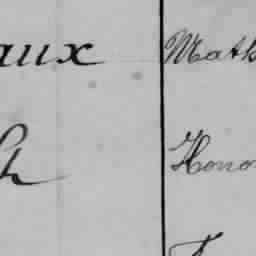 aux Math
h Hono